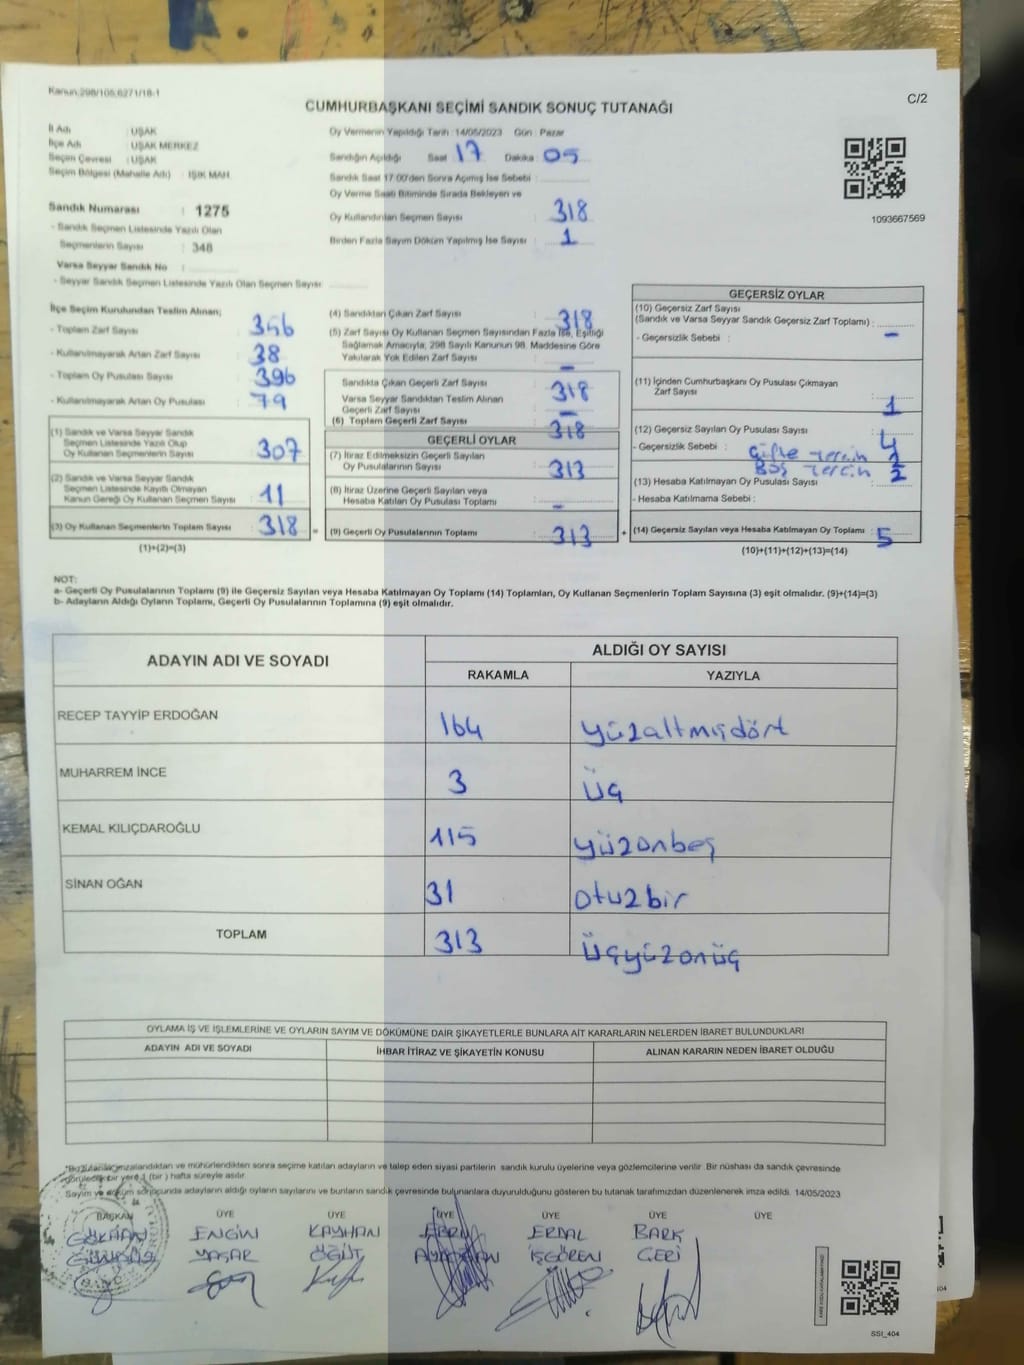 Kanun:298/105,6271/18-1
C/2
CUMHURBAŞKANI SEÇİMİ SANDIK SONUÇ TUTANAĞI
İl Adı : UŞAK
İlçe Adı : UŞAK MERKEZ
Seçim Çevresi : UŞAK
Seçim Bölgesi (Mahalle Adı) : IŞIK MAH.
Sandık Numarası : 1275
- Sandık Seçmen Listesinde Yazılı Olan
Seçmenlerin Sayısı : 348
Varsa Seyyar Sandık No :
- Seyyar Sandık Seçmen Listesinde Yazılı Olan Seçmen Sayısı :
Oy Vermenin Yapıldığı Tarih :14/05/2023 Gün : Pazar
Sandığın Açıldığı Saat 17 Dakika : 05
Sandık Saat 17:00'den Sonra Açımış İse Sebebi :
Oy Verme Saati Bitiminde Sırada Bekleyen ve
Oy Kullandırılan Seçmen Sayısı : 318
Birden Fazla Sayım Döküm Yapılmış İse Sayısı : 1
1093667569
İlçe Seçim Kurulundan Teslim Alınan;
- Toplam Zarf Sayısı : 356
- Kullanılmayarak Artan Zarf Sayısı : 38
- Toplam Oy Pusulası Sayısı : 396
- Kullanılmayarak Artan Oy Pusulası : 79
(1) Sandık ve Varsa Seyyar Sandık
Seçmen Listesinde Yazılı Olup
Oy Kullanan Seçmenlerin Sayısı : 307
(2) Sandık ve Varsa Seyyar Sandık
Seçmen Listesinde Kayıtlı Olmayan
Kanun Gereği Oy Kullanan Seçmen Sayısı : 11
(3) Oy Kullanan Seçmenlerin Toplam Sayısı : 318 =
(1)+(2)=(3)
(4) Sandıktan Çıkan Zarf Sayısı : 318
(5) Zarf Sayısı Oy Kullanan Seçmen Sayısından Fazla İse, Eşitliği
Sağlamak Amacıyla, 298 Sayılı Kanunun 98. Maddesine Göre
Yakılarak Yok Edilen Zarf Sayısı : -
Sandıkta Çıkan Geçerli Zarf Sayısı : 318
Varsa Seyyar Sandıktan Teslim Alınan
Geçerli Zarf Sayısı : -
(6) Toplam Geçerli Zarf Sayısı : 318
GEÇERLİ OYLAR
(7) İtiraz Edilmeksizin Geçerli Sayılan
Oy Pusulalarının Sayısı : 313
(8) İtiraz Üzerine Geçerli Sayılan veya
Hesaba Katılan Oy Pusulası Toplamı : -
(9) Geçerli Oy Pusulalarının Toplamı : 313 +
GEÇERSİZ OYLAR
(10) Geçersiz Zarf Sayısı
(Sandık ve Varsa Seyyar Sandık Geçersiz Zarf Toplamı) :
- Geçersizlik Sebebi : -
(11) İçinden Cumhurbaşkanı Oy Pusulası Çıkmayan
Zarf Sayısı : 1
(12) Geçersiz Sayılan Oy Pusulası Sayısı : 4
- Geçersizlik Sebebi : Çifte tercih 2
Boş tercih 2
(13) Hesaba Katılmayan Oy Pusulası Sayısı :
- Hesaba Katılmama Sebebi :
(14) Geçersiz Sayılan veya Hesaba Katılmayan Oy Toplamı : 5
(10)+(11)+(12)+(13)=(14)
NOT:
a- Geçerli Oy Pusulalarının Toplamı (9) ile Geçersiz Sayılan veya Hesaba Katılmayan Oy Toplamı (14) Toplamları, Oy Kullanan Seçmenlerin Toplam Sayısına (3) eşit olmalıdır. (9)+(14)=(3)
b- Adayların Aldığı Oyların Toplamı, Geçerli Oy Pusulalarının Toplamına (9) eşit olmalıdır.
ADAYIN ADI VE SOYADI
ALDIĞI OY SAYISI
RAKAMLA YAZIYLA
RECEP TAYYİP ERDOĞAN 164 yüzaltmışdört
MUHARREM İNCE 3 üç
KEMAL KILIÇDAROĞLU 115 yüzonbeş
SİNAN OĞAN 31 otuzbir
TOPLAM 313 üçyüzonüç
OYLAMA İŞ VE İŞLEMLERİNE VE OYLARIN SAYIM VE DÖKÜMÜNE DAİR ŞİKAYETLERLE BUNLARA AİT KARARLARIN NELERDEN İBARET BULUNDUKLARI
ADAYIN ADI VE SOYADI İHBAR İTİRAZ VE ŞİKAYETİN KONUSU ALINAN KARARIN NEDEN İBARET OLDUĞU
*Bu tutanak imzalandıktan ve mühürlendikten sonra seçime katılan adayların ve talep eden siyasi partilerin sandık kurulu üyelerine veya gözlemcilerine verilir. Bir nüshası da sandık çevresinde
görülecek bir yere 1 (bir) hafta süreyle asılır.
Sayım ve döküm sonucunda adayların aldığı oyların sayılarını ve bunların sandık çevresinde bulunanlara duyurulduğunu gösteren bu tutanak tarafımızdan düzenlenerek imza edildi. 14/05/2023
BAŞKAN ÜYE ÜYE ÜYE ÜYE ÜYE ÜYE
GÖKHAN ENGİN KAYIHAN EBRU ERDAL BARK
YAŞAR ÖĞÜT İŞGÖREN GERİ
SSI_404